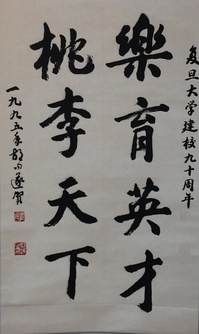 复旦大学建校九十周年
樂育英才
桃李天下
一九九五年胡问遂贺